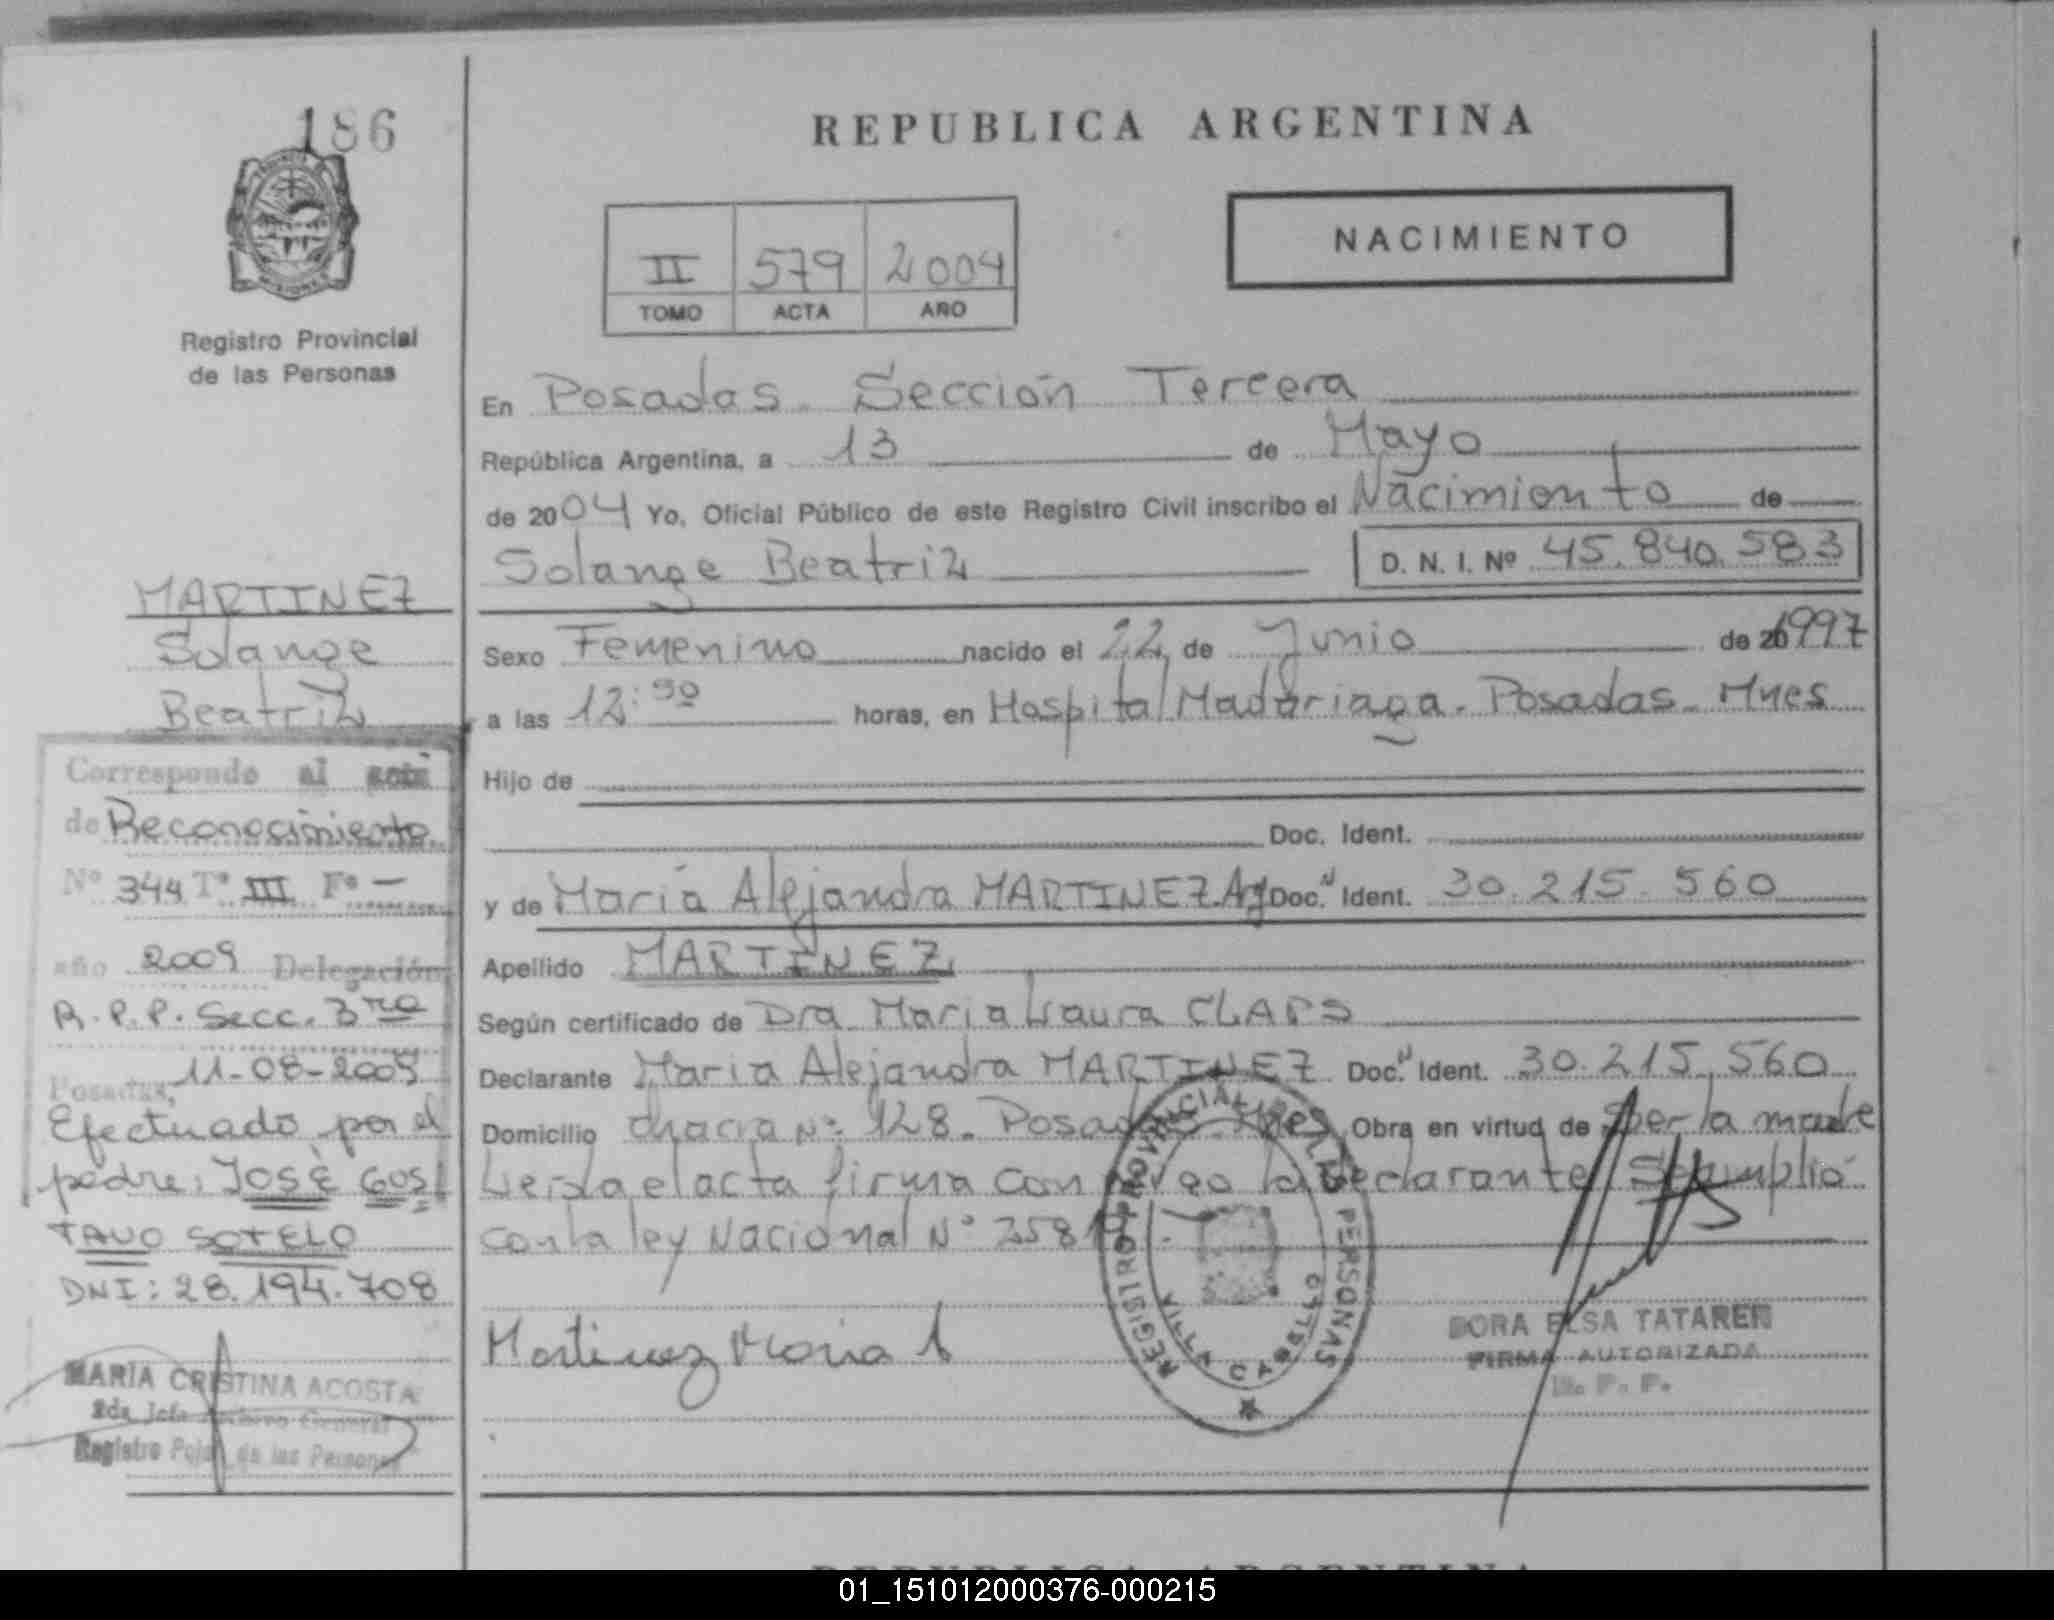 186
REPUBLICA ARGENTINA
NACIMIENTO
II 579 2004
TOMO ACTA AÑO
Registro Provincial
de las Personas
En Posadas Sección Tercera
República Argentina, a 13 de Mayo
de 2004 Yo, Oficial Público de este Registro Civil inscribo el Nacimiento de
Solange Beatriz D. N. I. Nº 45.840.583
Sexo Femenino nacido el 22 de Junio de 20 1997
a las 12:50 horas, en Hospital Madariaga. Posadas. Mnes
Hijo de
Doc. Ident.
y de María Alejandra MARTINEZ. Arg Doc. Ident. 30.215.560
Apellido MARTINEZ
Según certificado de Dra. Maria Laura CLAPS
Declarante Maria Alejandra MARTINEZ Doc. Ident. 30.215.560
Domicilio chacra Nº 128. Posadas. Mnes Obra en virtud de ser la madre
Leida el acta firma conmigo la declarante Se cumplió
con la ley Nacional Nº
Martinez Maria A
REGISTRO PROVINCIAL DE LAS PERSONAS
VILLA CABELLO
DORA ELSA TATAREN
FIRMA AUTORIZADA
R. P. P.
MARTINEZ
Solange
Beatriz
Corresponde al acta
de Reconocimiento
Nº 344 Tº III Fº —
año 2009 Delegación
R.P.P. Secc. 3ra
Posadas, 11-08-2009
Efectuado por el
padre: JOSÉ GUS
TAVO SOTELO
DNI: 28.194.708
MARIA CRISTINA ACOSTA
2da Jefa Archivo General
Registro Pcial. de las Personas
REPUBLICA ARGENTINA
01_151012000376-000215